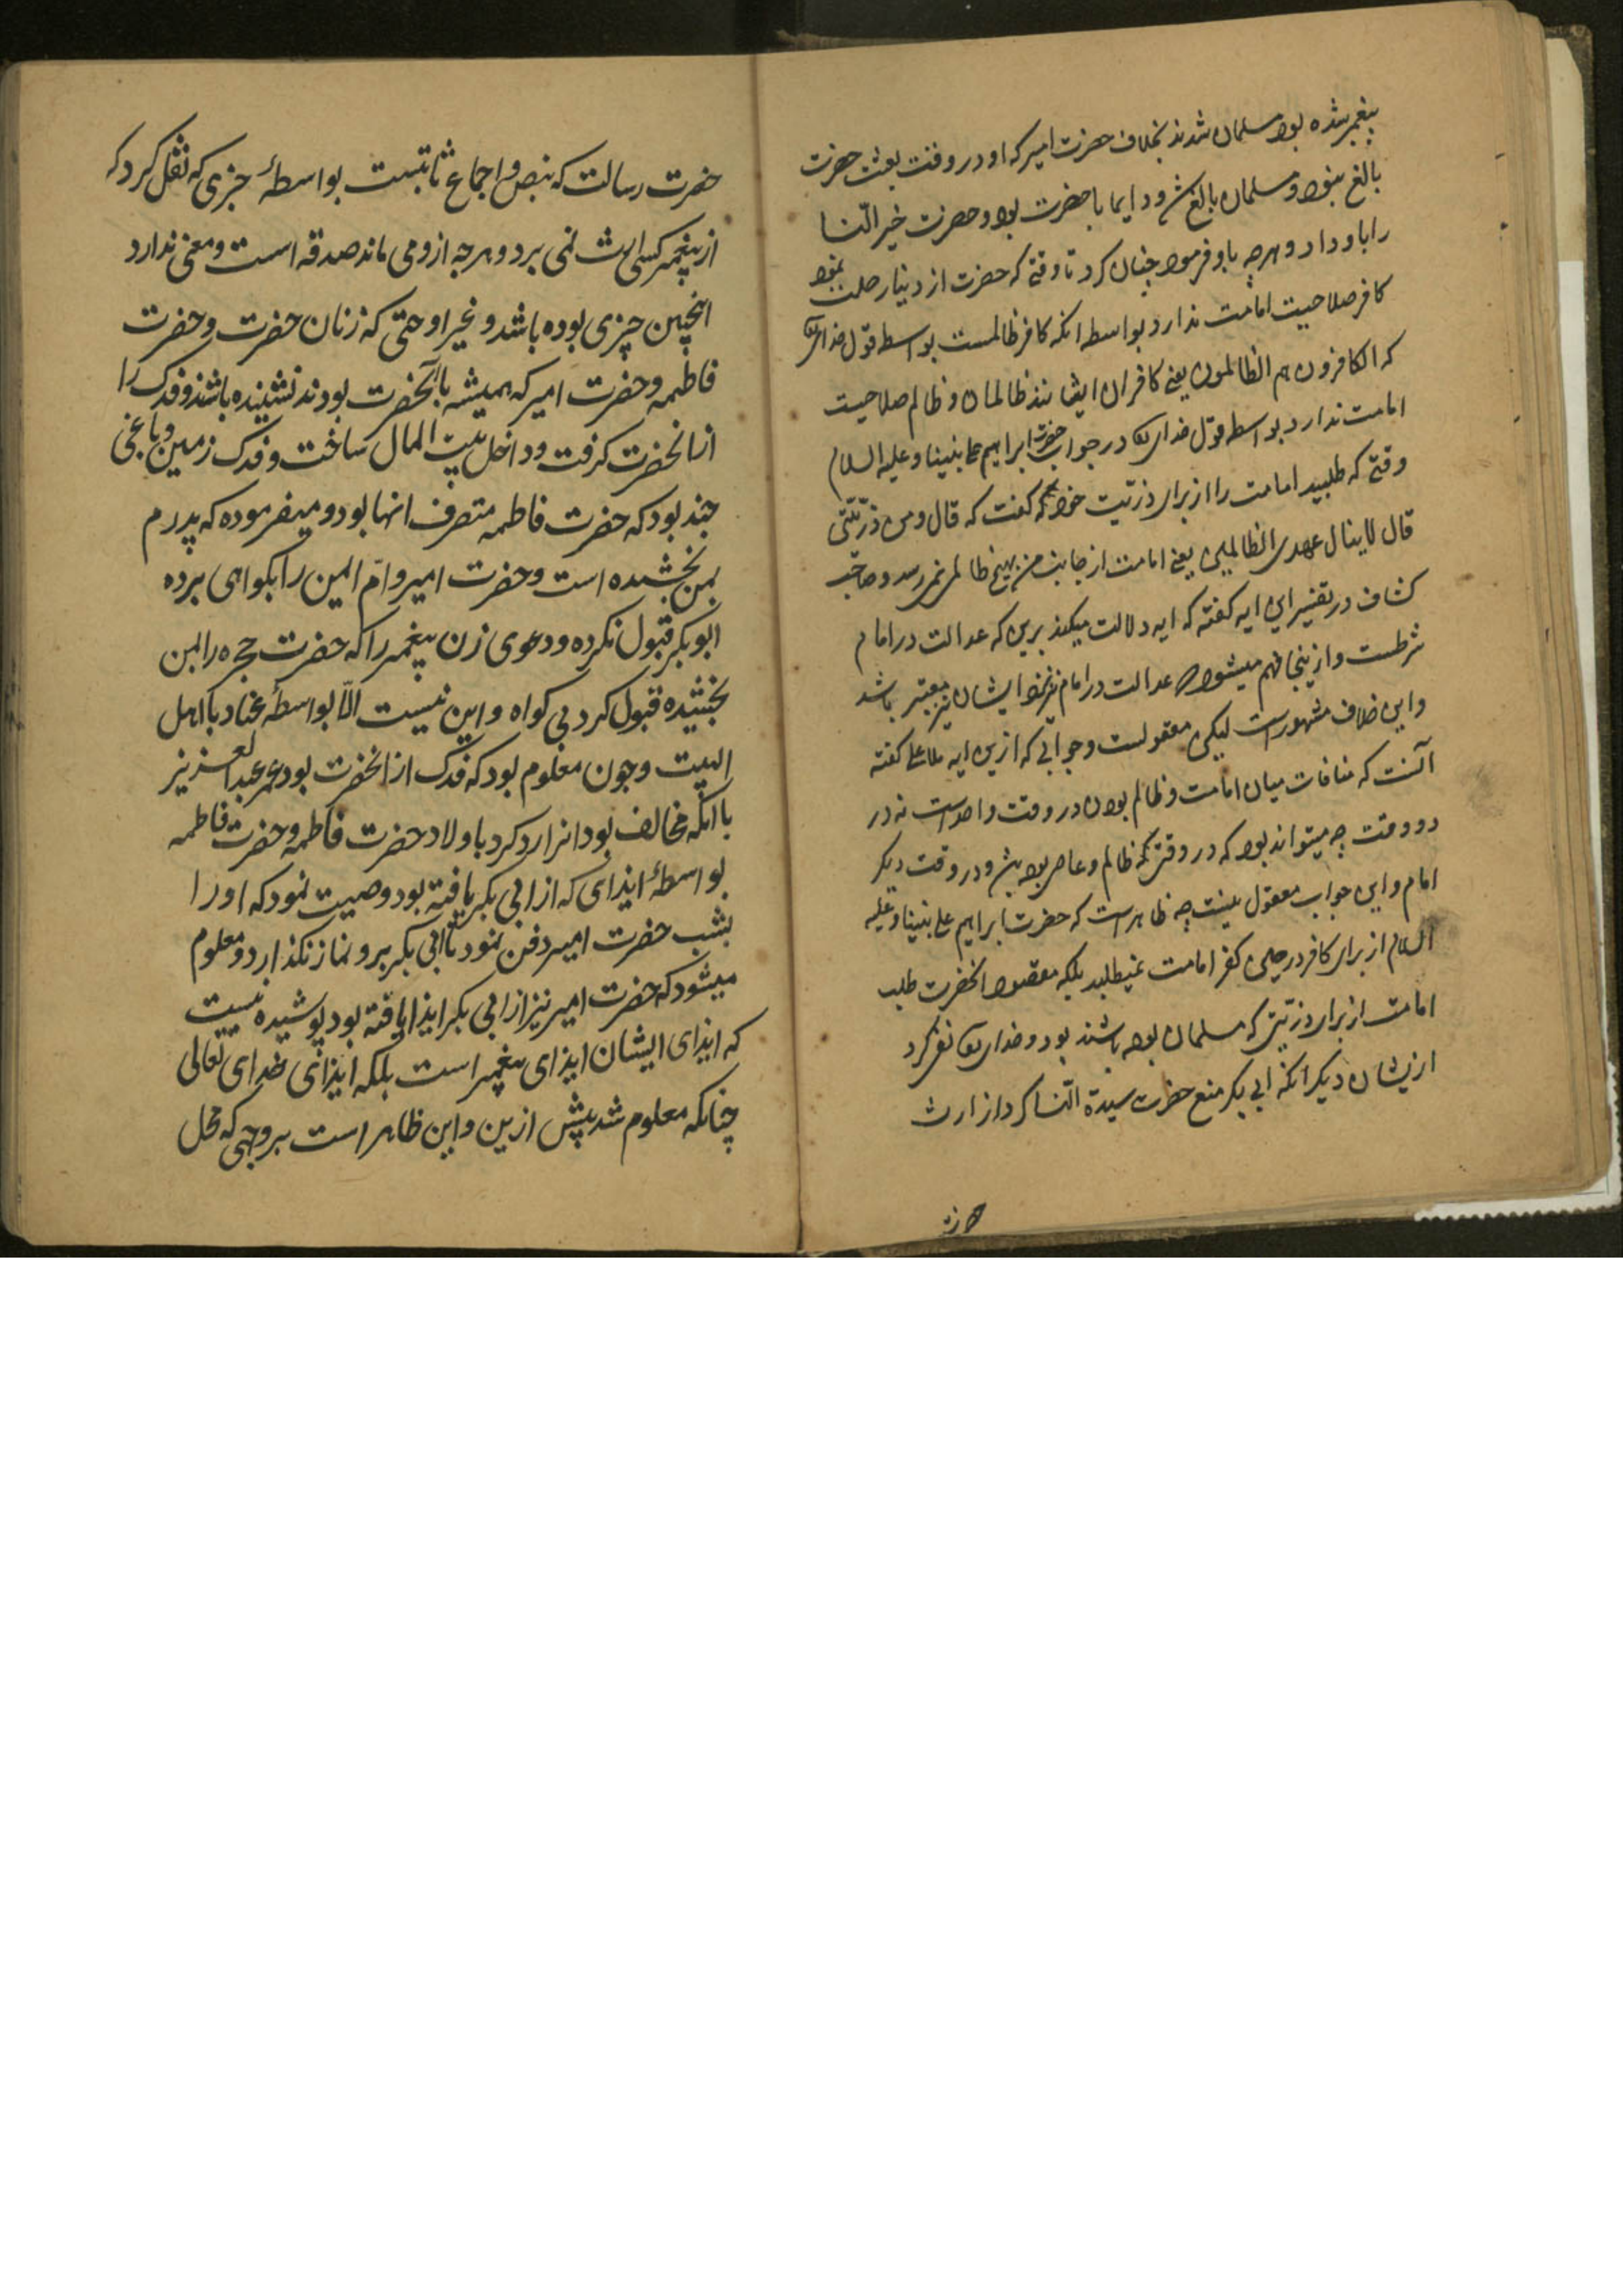 پیغمبر شده بود مسلمان شدند بخلاف حضرت امیر که او در وقت بعثت حضرت
بالغ نبود و مسلمان بالغ شد و دایما با حضرت بود و حضرت خیر النسا
را باو داد و هرچه باو فرمود چنان کرد تا وقتی که حضرت از دنیا رحلت نمود
کافر صلاحیت امامت ندارد بواسطه انکه کافر ظالمست بواسطه قول خدای
که الکافرون هم الظالمون یعنی کافران ایشانند ظالمان و ظالم صلاحیت
امامت ندارد بواسطه قول خدای در جواب حضرت ابراهیم علی نبینا و علیه السلام
وقتی که طلبید امامت را از برای ذریت خود که گفت که قال ومن ذریتی
قال لاینال عهدی الظالمین یعنی امامت از جانب من بهیچ ظالمی نمیرسد و صاحب
کشاف در تفسیر این ایه کفته که ایه دلالت میکند برین که عدالت در امام
شرطست و ازینجا فهم میشود که عدالت در امام نزد ایشان نیز معتبر باشد
و این خلاف مشهور است لیکن معقولست و جوابی که ازین ایه ملا علی کفته
آنست که منافات میان امامت و ظالم بودن در وقت واحد است نه در
دو وقت چه میتواند بود که در وقتی که ظالم و عاصی بوده باشد و در وقت دیکر
امام و این جواب معقول نیست چه ظاهر است که حضرت ابراهیم علی نبینا و علیه
السلام از برای کافر در حین کفر امامت نمیطلبد بلکه مقصود انحضرت طلب
امامت از برای ذریتی که مسلمان بوده باشند بود و خدای نفی کرد
ازیشان دیکر انکه ابی بکر منع حضرت سیدة النسا کرد از ارث
حضرت
حضرت رسالت که بنص و اجماع ثابتست بواسطهٔ خبری که نقل کرد که
از پیغمبر کسی ارث نمی برد و هرچه ازو می ماند صدقه است و معنی ندارد
اینچنین چیزی بوده باشد و غیر او حتی که زنان حضرت و حضرت
فاطمه و حضرت امیر که همیشه با آنحضرت بودند نشنیده باشند و فدک را
از انحضرت کرفت و داخل بیت المال ساخت و فدک زمین و باغی
چند بود که حضرت فاطمه متصرف انها بود و میفرموده که پدرم
بمن بخشیده است و حضرت امیر و ام ایمن را بکواهی برده
ابو بکر قبول نکرده و دعوی زن پیغمبر را که حضرت حجره را بمن
بخشیده قبول کرد بی کواه و این نیست الا بواسطهٔ عناد با اهل
البیت و چون معلوم بود که فدک از انحضرت بود عمر عبد العزیز
با انکه مخالف بود انرا رد کرد باولاد حضرت فاطمه و حضرت فاطمه
بواسطهٔ ایذای که از ابی بکر یافته بود وصیت نمود که او را
بشب حضرت امیر دفن نمود تا ابی بکر برو نماز نکذارد و معلوم
میشود که حضرت امیر نیز از ابی بکر ایذا یافته بود پوشیده نیست
که ایذای ایشان ایذای پیغمبر است بلکه ایذای خدای تعالی
چنانکه معلوم شد پیش ازین و این ظاهر است بر وجهی که محل